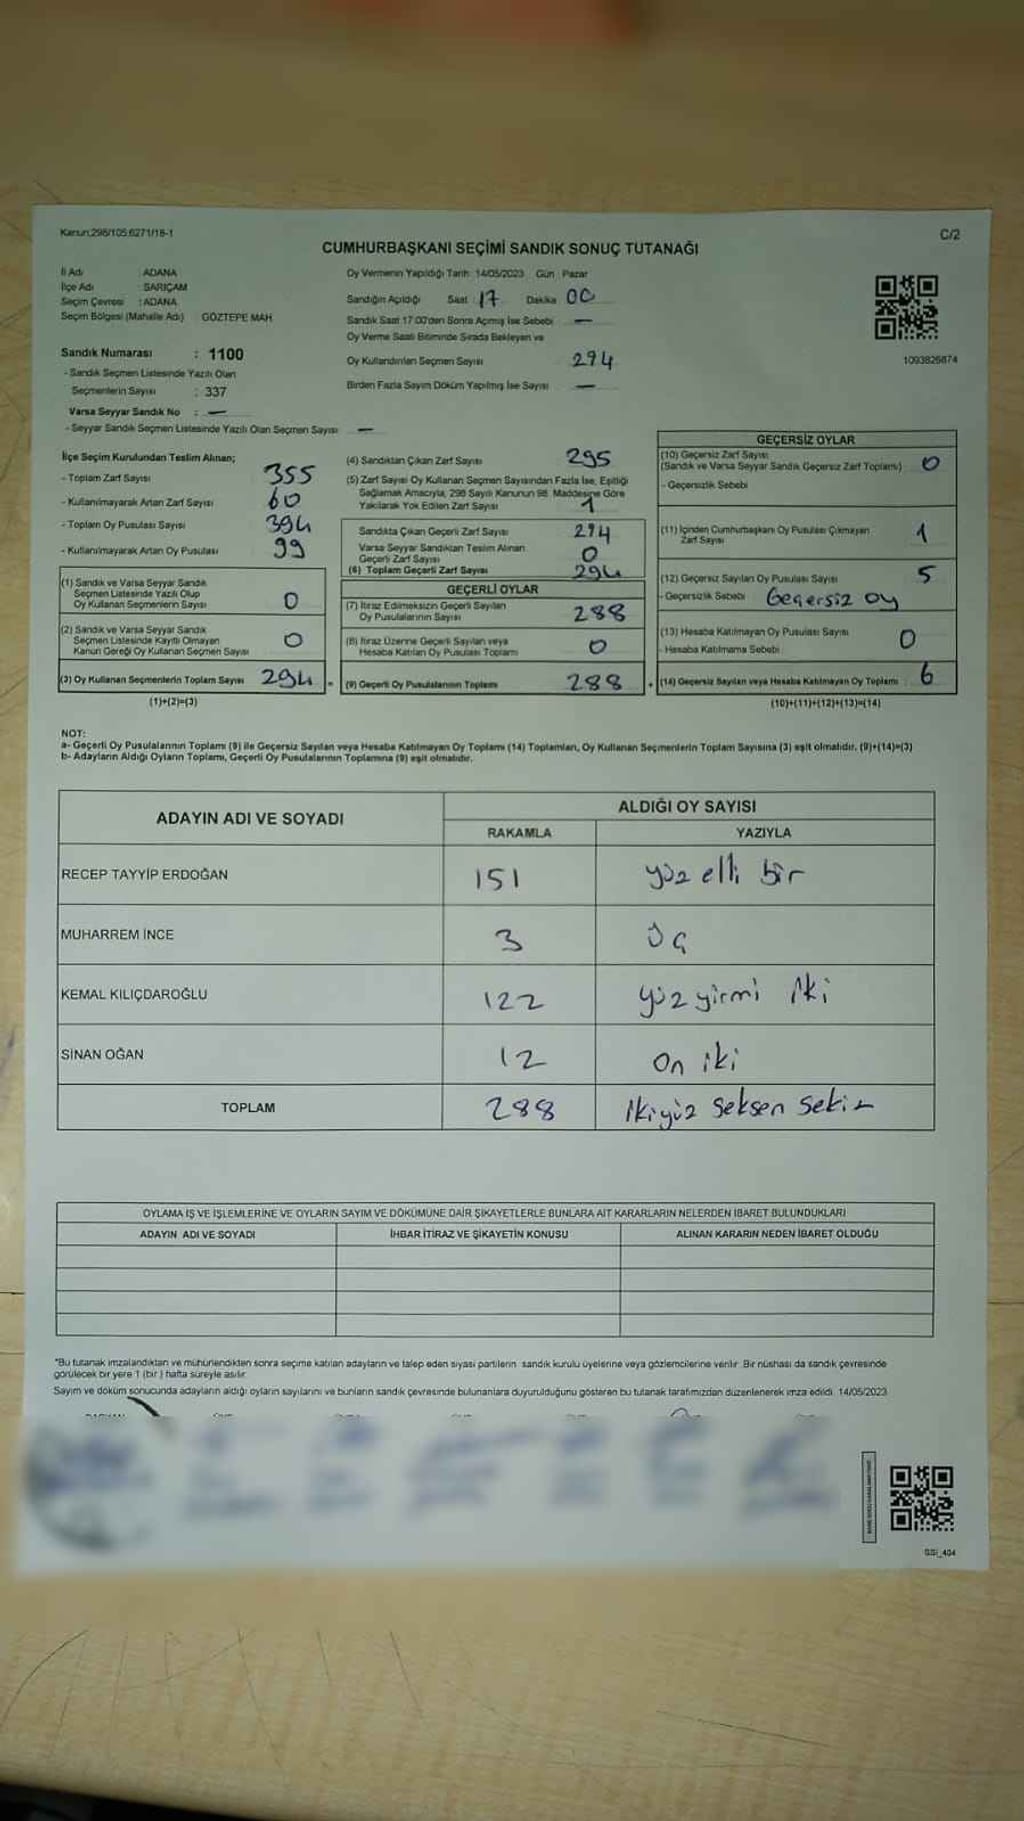 Kanun:298/105:6271/18-1
C/2
CUMHURBAŞKANI SEÇİMİ SANDIK SONUÇ TUTANAĞI
İl Adı : ADANA
İlçe Adı : SARIÇAM
Seçim Çevresi : ADANA
Seçim Bölgesi (Mahalle Adı) GÖZTEPE MAH.
Sandık Numarası : 1100
- Sandık Seçmen Listesinde Yazılı Olan
Seçmenlerin Sayısı : 337
Varsa Seyyar Sandık No : —
- Seyyar Sandık Seçmen Listesinde Yazılı Olan Seçmen Sayısı —
Oy Vermenin Yapıldığı Tarih: 14/05/2023 Gün : Pazar
Sandığın Açıldığı Saat : 17 Dakika 00
Sandık Saat 17:00'den Sonra Açılmış İse Sebebi —
Oy Verme Saati Bitiminde Sırada Bekleyen ve
Oy Kullandırılan Seçmen Sayısı 294
Birden Fazla Sayım Döküm Yapılmış İse Sayısı —
1093826874
İlçe Seçim Kurulundan Teslim Alınan;
- Toplam Zarf Sayısı 355
- Kullanılmayarak Artan Zarf Sayısı 60
- Toplam Oy Pusulası Sayısı 394
- Kullanılmayarak Artan Oy Pusulası 99
(1) Sandık ve Varsa Seyyar Sandık
Seçmen Listesinde Yazılı Olup
Oy Kullanan Seçmenlerin Sayısı 0
(2) Sandık ve Varsa Seyyar Sandık
Seçmen Listesinde Kayıtlı Olmayan
Kanun Gereği Oy Kullanan Seçmen Sayısı 0
(3) Oy Kullanan Seçmenlerin Toplam Sayısı 294 =
(1)+(2)=(3)
(4) Sandıktan Çıkan Zarf Sayısı 295
(5) Zarf Sayısı Oy Kullanan Seçmen Sayısından Fazla İse, Eşitliği
Sağlamak Amacıyla, 298 Sayılı Kanunun 98. Maddesine Göre
Yakılarak Yok Edilen Zarf Sayısı 1
Sandıkta Çıkan Geçerli Zarf Sayısı 294
Varsa Seyyar Sandıktan Teslim Alınan
Geçerli Zarf Sayısı 0
(6) Toplam Geçerli Zarf Sayısı 294
GEÇERLİ OYLAR
(7) İtiraz Edilmeksizin Geçerli Sayılan
Oy Pusulalarının Sayısı 288
(8) İtiraz Üzerine Geçerli Sayılan veya
Hesaba Katılan Oy Pusulası Toplamı 0
(9) Geçerli Oy Pusulalarının Toplamı 288 +
GEÇERSİZ OYLAR
(10) Geçersiz Zarf Sayısı
(Sandık ve Varsa Seyyar Sandık Geçersiz Zarf Toplamı) 0
- Geçersizlik Sebebi
(11) İçinden Cumhurbaşkanı Oy Pusulası Çıkmayan
Zarf Sayısı 1
(12) Geçersiz Sayılan Oy Pusulası Sayısı 5
- Geçersizlik Sebebi Geçersiz oy
(13) Hesaba Katılmayan Oy Pusulası Sayısı 0
- Hesaba Katılmama Sebebi
(14) Geçersiz Sayılan veya Hesaba Katılmayan Oy Toplamı : 6
(10)+(11)+(12)+(13)=(14)
NOT:
a- Geçerli Oy Pusulalarının Toplamı (9) ile Geçersiz Sayılan veya Hesaba Katılmayan Oy Toplamı (14) Toplamları, Oy Kullanan Seçmenlerin Toplam Sayısına (3) eşit olmalıdır. (9)+(14)=(3)
b- Adayların Aldığı Oyların Toplamı, Geçerli Oy Pusulalarının Toplamına (9) eşit olmalıdır.
ADAYIN ADI VE SOYADI
ALDIĞI OY SAYISI
RAKAMLA YAZIYLA
RECEP TAYYİP ERDOĞAN 151 yüz elli bir
MUHARREM İNCE 3 Üç
KEMAL KILIÇDAROĞLU 122 yüz yirmi iki
SİNAN OĞAN 12 on iki
TOPLAM 288 ikiyüz seksen sekiz
OYLAMA İŞ VE İŞLEMLERİNE VE OYLARIN SAYIM VE DÖKÜMÜNE DAİR ŞİKAYETLERLE BUNLARA AİT KARARLARIN NELERDEN İBARET BULUNDUKLARI
ADAYIN ADI VE SOYADI İHBAR İTİRAZ VE ŞİKAYETİN KONUSU ALINAN KARARIN NEDEN İBARET OLDUĞU
*Bu tutanak imzalandıktan ve mühürlendikten sonra seçime katılan adayların ve talep eden siyasi partilerin sandık kurulu üyelerine veya gözlemcilerine verilir. Bir nüshası da sandık çevresinde
görülecek bir yere 1 (bir) hafta süreyle asılır.
Sayım ve döküm sonucunda adayların aldığı oyların sayılarını ve bunların sandık çevresinde bulunanlara duyurulduğunu gösteren bu tutanak tarafımızdan düzenlenerek imza edildi. 14/05/2023